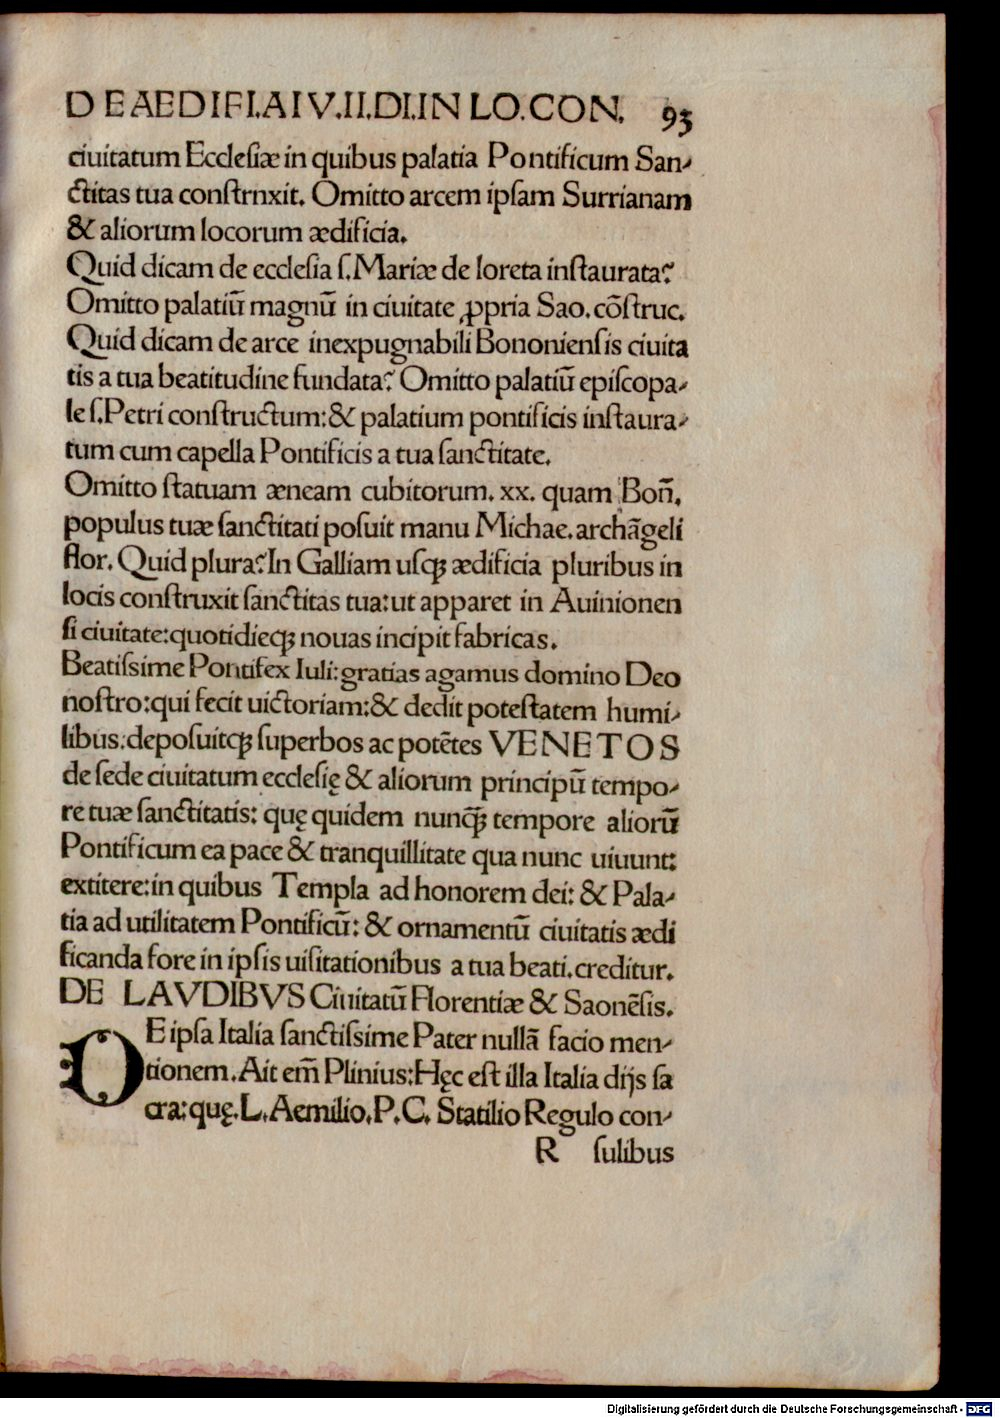 DE AEDIFI.A IV.II.DI.IN LO.CON. 93
ciuitatum Ecclesiæ in quibus palatia Pontificum San-
ctitas tua constrnxit. Omitto arcem ipsam Surrianam
& aliorum locorum ædificia.
Quid dicam de ecclesia s.Mariæ de loreta instaurata?
Omitto palatiū magnū in ciuitate ꝓpria Sao.cōstruc.
Quid dicam de arce inexpugnabili Bononiensis ciuita
tis a tua beatitudine fundata? Omitto palatiū episcopa-
le s.Petri constructum:& palatium pontificis instaura-
tum cum capella Pontificis a tua sanctitate.
Omitto statuam æneam cubitorum.xx. quam Boñ.
populus tuæ sanctitati posuit manu Michae.archāgeli
flor. Quid plura? In Galliam usqꝫ ædificia pluribus in
locis construxit sanctitas tua:ut apparet in Auinionen
si ciuitate:quotidieqꝫ nouas incipit fabricas.
Beatissime Pontifex Iuli:gratias agamus domino Deo
nostro:qui fecit uictoriam:& dedit potestatem humi-
libus:deposuitqꝫ superbos ac potētes VENETOS
de sede ciuitatum ecclesię & aliorum principū tempo-
re tuæ sanctitatis: quę quidem nunqꝫ̄ tempore aliorū
Pontificum ea pace & tranquillitate qua nunc uiuunt:
extitere:in quibus Templa ad honorem dei: & Pala-
tia ad utilitatem Pontificū: & ornamentū ciuitatis ædi
ficanda fore in ipsis uisitationibus a tua beati.creditur.
DE LAVDIBVS Ciuitatū Florentiæ & Saonēsis.
DE ipsa Italia sanctissime Pater nullā facio men-
tionem.Ait em̄ Plinius:Hęc est illa Italia dijs sa
cra:quę.L.Aemilio.P.C. Statilio Regulo con-
R sulibus
Digitalisierung gefördert durch die Deutsche Forschungsgemeinschaft - DFG